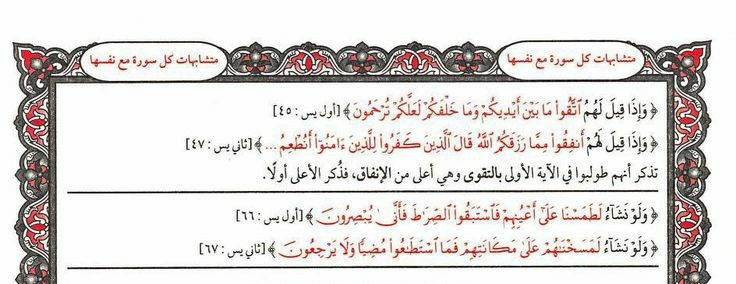 متشابهات كل سورة مع نفسها
متشابهات كل سورة مع نفسها
﴿ وَإِذَا قِيلَ لَهُمُ ٱتَّقُوا۟ مَا بَيْنَ أَيْدِيكُمْ وَمَا خَلْفَكُمْ لَعَلَّكُمْ تُرْحَمُونَ ﴾ [أول يس : ٤٥]
﴿ وَإِذَا قِيلَ لَهُمْ أَنفِقُوا۟ مِمَّا رَزَقَكُمُ ٱللَّهُ قَالَ ٱلَّذِينَ كَفَرُوا۟ لِلَّذِينَ ءَامَنُوٓا۟ أَنُطْعِمُ ... ﴾ [ثاني يس : ٤٧]
تذكر أنهم طولبوا في الآية الأولى بالتقوى وهي أعلى من الإنفاق، فذُكر الأعلى أولًا.
﴿ وَلَوْ نَشَآءُ لَطَمَسْنَا عَلَىٰٓ أَعْيُنِهِمْ فَٱسْتَبَقُوا۟ ٱلصِّرَٰطَ فَأَنَّىٰ يُبْصِرُونَ ﴾ [أول يس : ٦٦]
﴿ وَلَوْ نَشَآءُ لَمَسَخْنَٰهُمْ عَلَىٰ مَكَانَتِهِمْ فَمَا ٱسْتَطَٰعُوا۟ مُضِيًّا وَلَا يَرْجِعُونَ ﴾ [ثاني يس : ٦٧]